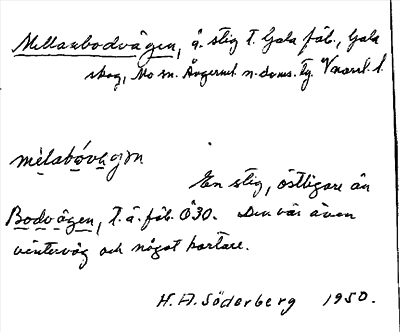 Mellanbodvägen, ä. stig t. Gala fäb., Gala
skog, Mo sn. Ångerml. n. doms. Tg. Vnorrl. l.
mèlabóvagɔn
En stig, östligare än
Bodvägen, t. ä. fäb. Ö30. Den var även
vinterväg och något kortare.
H. A. Söderberg 1950.